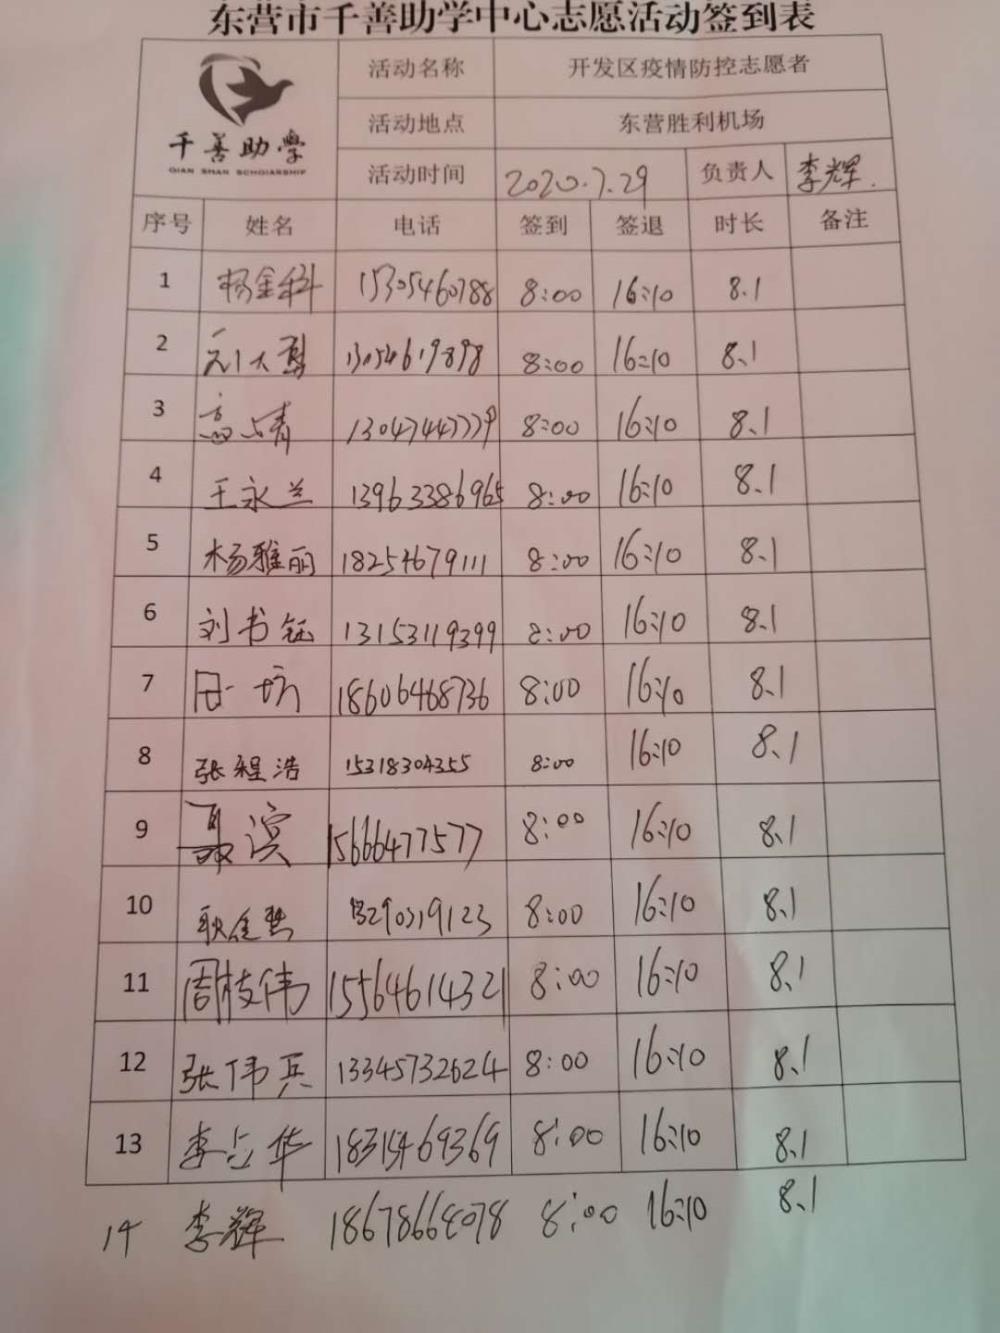 东营市千善助学中心志愿活动签到表
千善助学
QIAN SHAN SCHOLARSHIP
活动名称 开发区疫情防控志愿者
活动地点 东营胜利机场
活动时间 2020.7.29 负责人 李辉.
序号 姓名 电话 签到 签退 时长 备注
1 杨金科 15305460788 8:00 16:10 8.1
2 刘大勇 13054619898 8:00 16:10 8.1
3 高占青 13047447779 8:00 16:10 8.1
4 王永兰 13963386965 8:00 16:10 8.1
5 杨雅丽 18254679111 8:00 16:10 8.1
6 刘书钰 13153119399 8:00 16:10 8.1
7 田坊 18606468736 8:00 16:10 8.1
8 张程浩 15318304355 8:00 16:10 8.1
9 聂滨 15666477577 8:00 16:10 8.1
10 耿 8:00 16:10 8.1
11 周枝伟 15564614321 8:00 16:10 8.1
12 张伟兵 13345732624 8:00 16:10 8.1
13 李占华 18315469369 8:00 16:10 8.1
14 李辉 18678664078 8:00 16:10 8.1